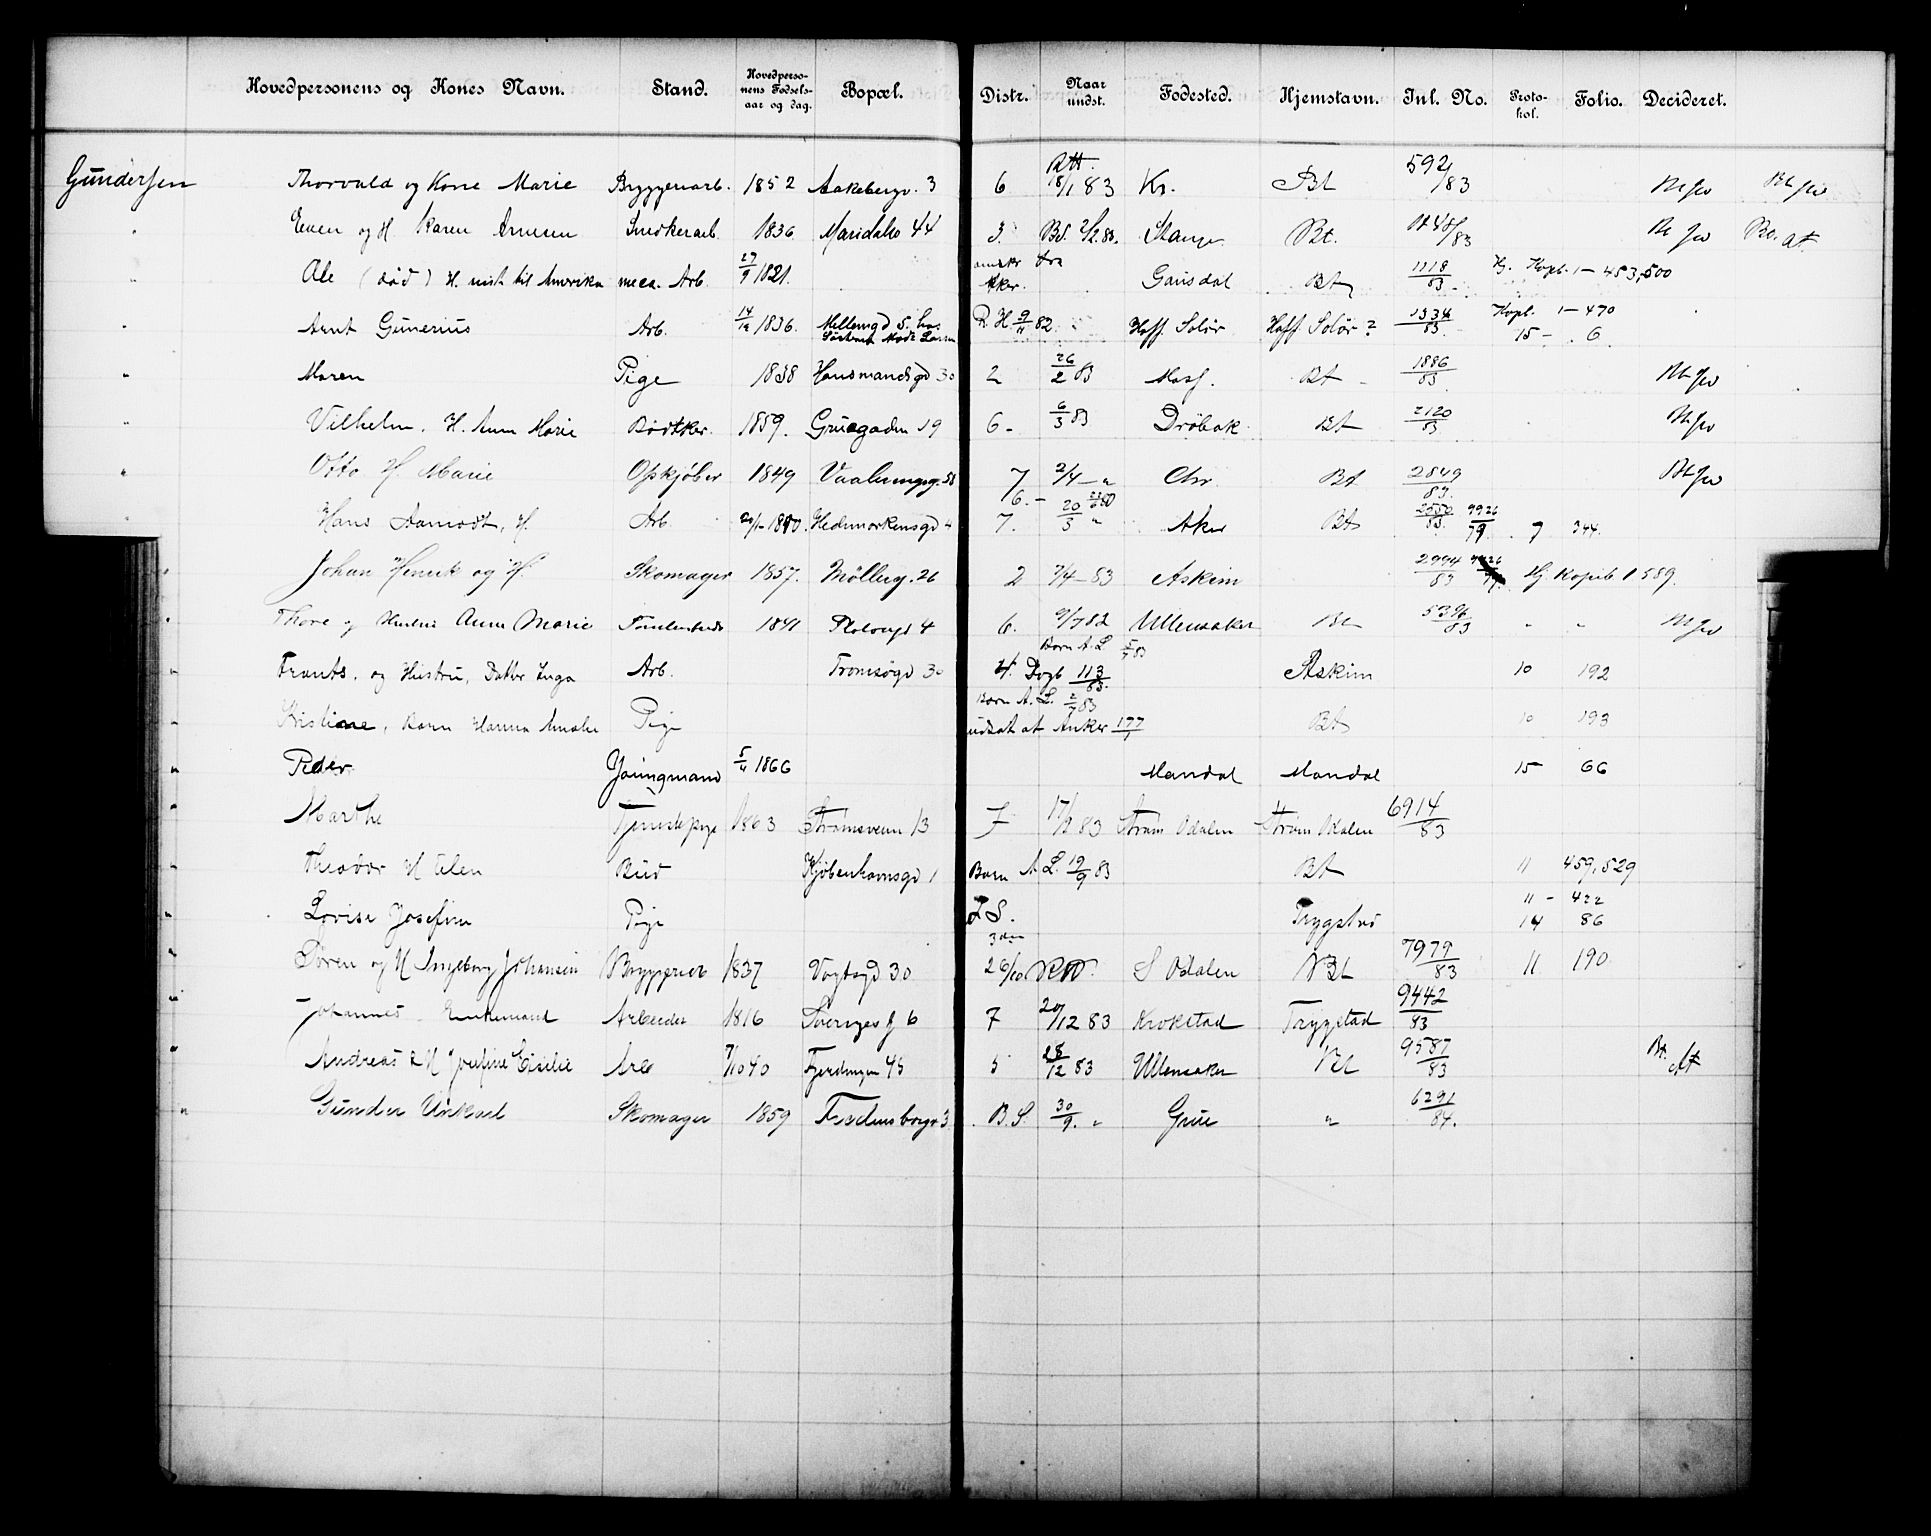 Hovedpersonens og Kones Navn. Stand. Hovedpersonens Fødselsaar og dag. Bopæl. Distr. Naar undst. Fødested. Hjemstavn. Inl. No. Protokol. Folio. Decideret.
Gundersen Thorvald og Kone Marie Bryggeriarb. 1852 Aakebergv. 3 6 18/1 83 Kr. Bt 592/83
" Even og H. Karen Arnesen Snedkerarb. 1836 Maridalsv 44 3. BS. 2/2 83. Stange Bt. 1148/83
" Ole (død) H. reist til Amerika mec. Arb. 27/9 1821. Aker. Gausdal Bt 1118/83 Hj. Kopb. 1 - 483,500
" Arnt Gunerius Arb. 14/12 1836. Møllergd 5. hos R.H 9/11 82 Hoff Solør Hoff Solør? 1334/83 Kopb. 1 - 470
15 - 6
" Maren Pige 1838 Hausmandsgd 30 2 26/2 83 Moss. Bt 1886/83
" Vilhelm. H. Ann Marie Bødtker. 1859. Gruegaden 19 6 - 6/3 83 Drøbak Bt 2120/83
" Otto H. Marie Opkjøber 1849 Vaalerengg. 58 7 2/4 - " Chr Bt 2849/83
" Hans Aamodt, H. Arb. 1880. Hedemarkensgd 4 7. 20/3 " Aker Bt 2550/83 9926/79 7 344.
" Johan Henrik og H. Skomager 1857. Møllerg. 26 2 7/4 - 83 Askim 2994/83 Hj. Kopib 1 589.
" Thore og Hustru Anne Marie 1841 Platougd 4 6. 9/7 82 Ullensaker Bt 5396/83 " "
" Frants. og Hustru, Datter Inga Arb. Tromsøgd 30 4. Dagb 113/83. Barn A. L. 5/7 83 Askim 10 192
" Kristiane, Barn Hanna Amalie Pige Barn A. L. 2/7 83 udsat at Anker 177/1 Bt 10 193
" Peder Youngmand 5/4 1866 Mandal Mandal 15 66
" Marthe Tjenestepige 1863 Strømsveien 13 7 83 Strøm Odalen Strøm Odalen 6914/83
" Theodor H Elen Bud Kjøbenhavnsgd 1 Barn A. L. 19/9 83 Bt 11 459,529
" Lovise Josefine Pige F S. Trygstad 11 - 422
14 86
" Søren og H Ingeborg Johansen Bryggeriarb 1837 Vogtsgd 30 26/10 S Odalen Bt 7979/83 11 190
" Johannes Enkemand Arbeider 1816 Sverigesg 6 7 20/12 83 Krokstad Trygstad 9442/83
" Andreas & H Josefine Cecilie Arb 7/10 40 Fjerdingen 45 5 28/12 83 Ullensaker Bt 9587/83 Bt. At
" Gunder Ursked Skomager 1859 Fredensborgv 3 B. S. 30/9. " Grue " 6291/84.